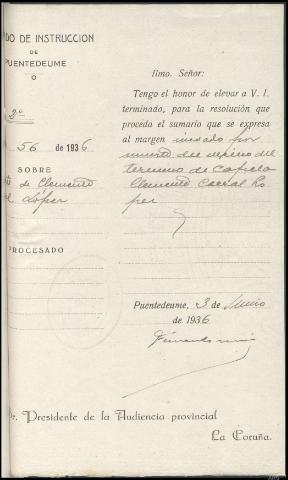 DO DE INSTRUCCION
DE
PUENTEDEUME
2º
56 de 1936
SOBRE
te de Clemente
l López
PROCESADO
Ilmo. Señor:
Tengo el honor de elevar a V. I.
terminado, para la resolución que
proceda el sumario que se expresa
al margen incoado por
muerte del vecino del
termino de Capela
Clemente Corral Lo-
pez
Puentedeume, 3 de Junio
de 1936
Sr. Presidente de la Audiencia provincial
La Coruña.